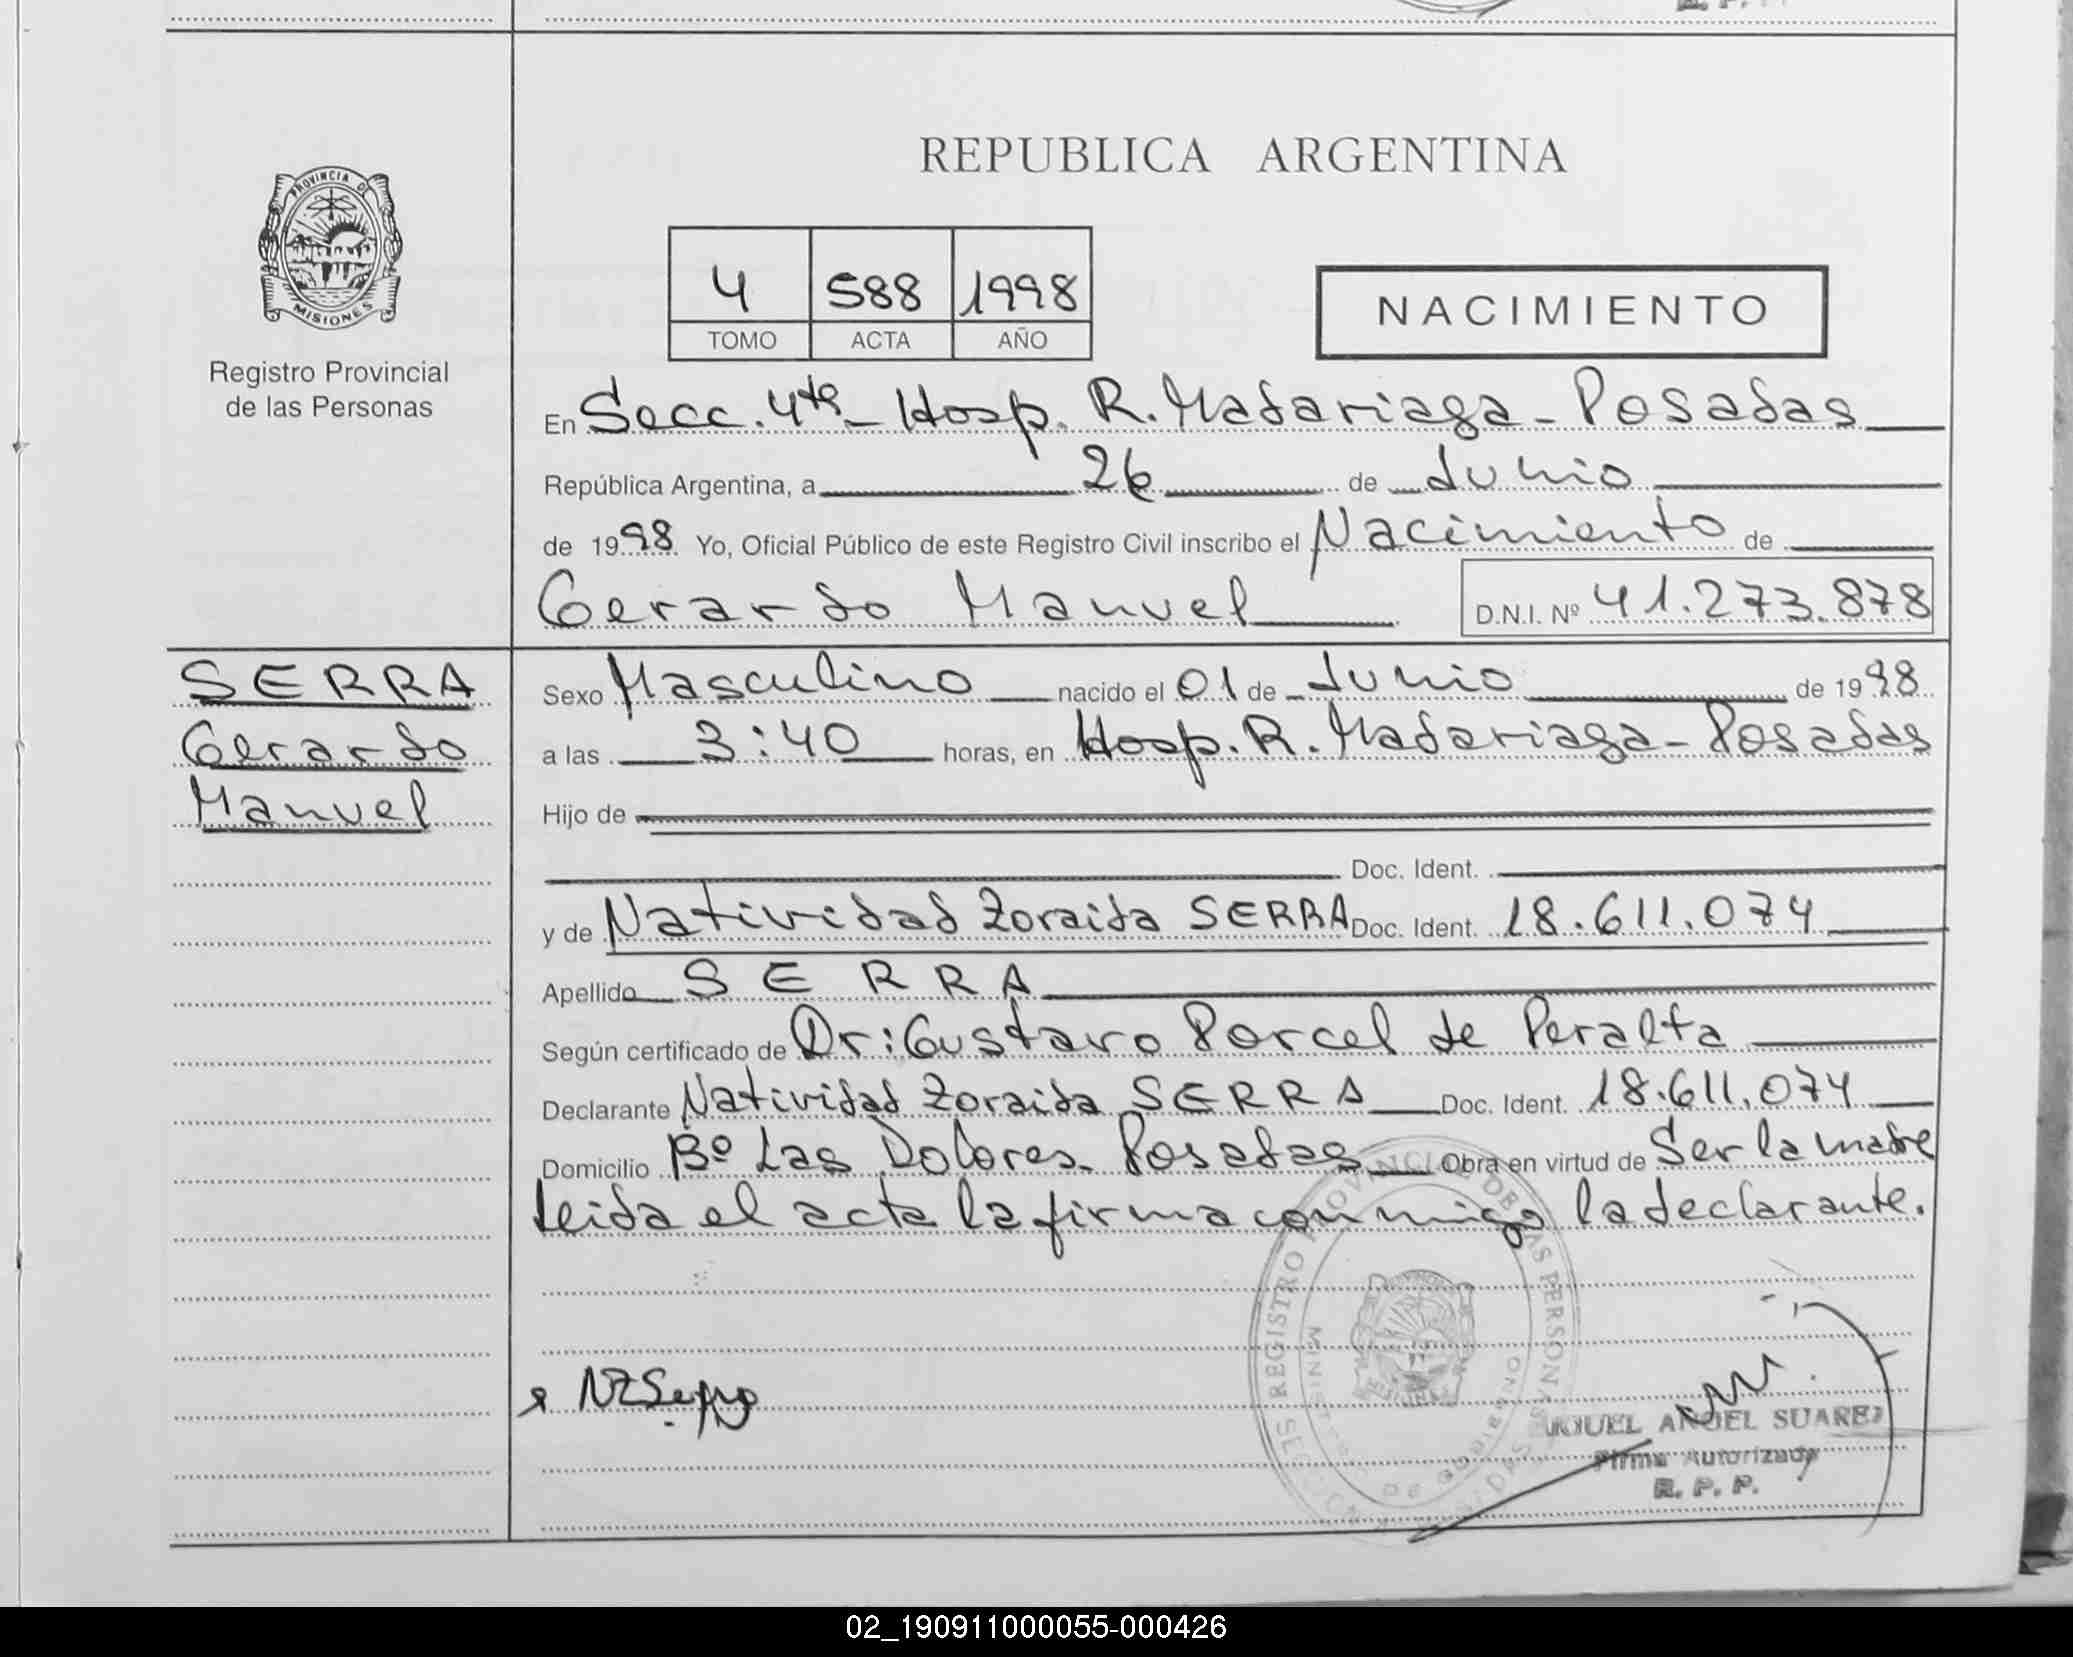 REPUBLICA ARGENTINA
PROVINCIA DE
MISIONES
Registro Provincial
de las Personas
4 588 1998
TOMO ACTA AÑO
NACIMIENTO
En Secc. 4ta - Hosp. R. Madariaga - Posadas
República Argentina, a 26 de Junio
de 1998 Yo, Oficial Público de este Registro Civil inscribo el Nacimiento de
Gerardo Manuel D.N.I. Nº 41.273.878
SERRA
Gerardo
Manuel
Sexo Masculino nacido el 01 de Junio de 1998
a las 3:40 horas, en Hosp. R. Madariaga - Posadas
Hijo de
Doc. Ident.
y de Natividad Zoraida SERRA Doc. Ident. 18.611.074
Apellido SERRA
Según certificado de Dr: Gustavo Porcel de Peralta
Declarante Natividad Zoraida SERRA Doc. Ident. 18.611.074
Domicilio Bº Las Dolores. Posadas Obra en virtud de Ser la madre
Leida el acta la firma conmigo la declarante.
REGISTRO PROVINCIAL DE LAS PERSONAS
MINISTERIO DE GOBIERNO
NZSerra
MIGUEL ANGEL SUAREZ
Firma Autorizada
R. P. P.
02_190911000055-000426